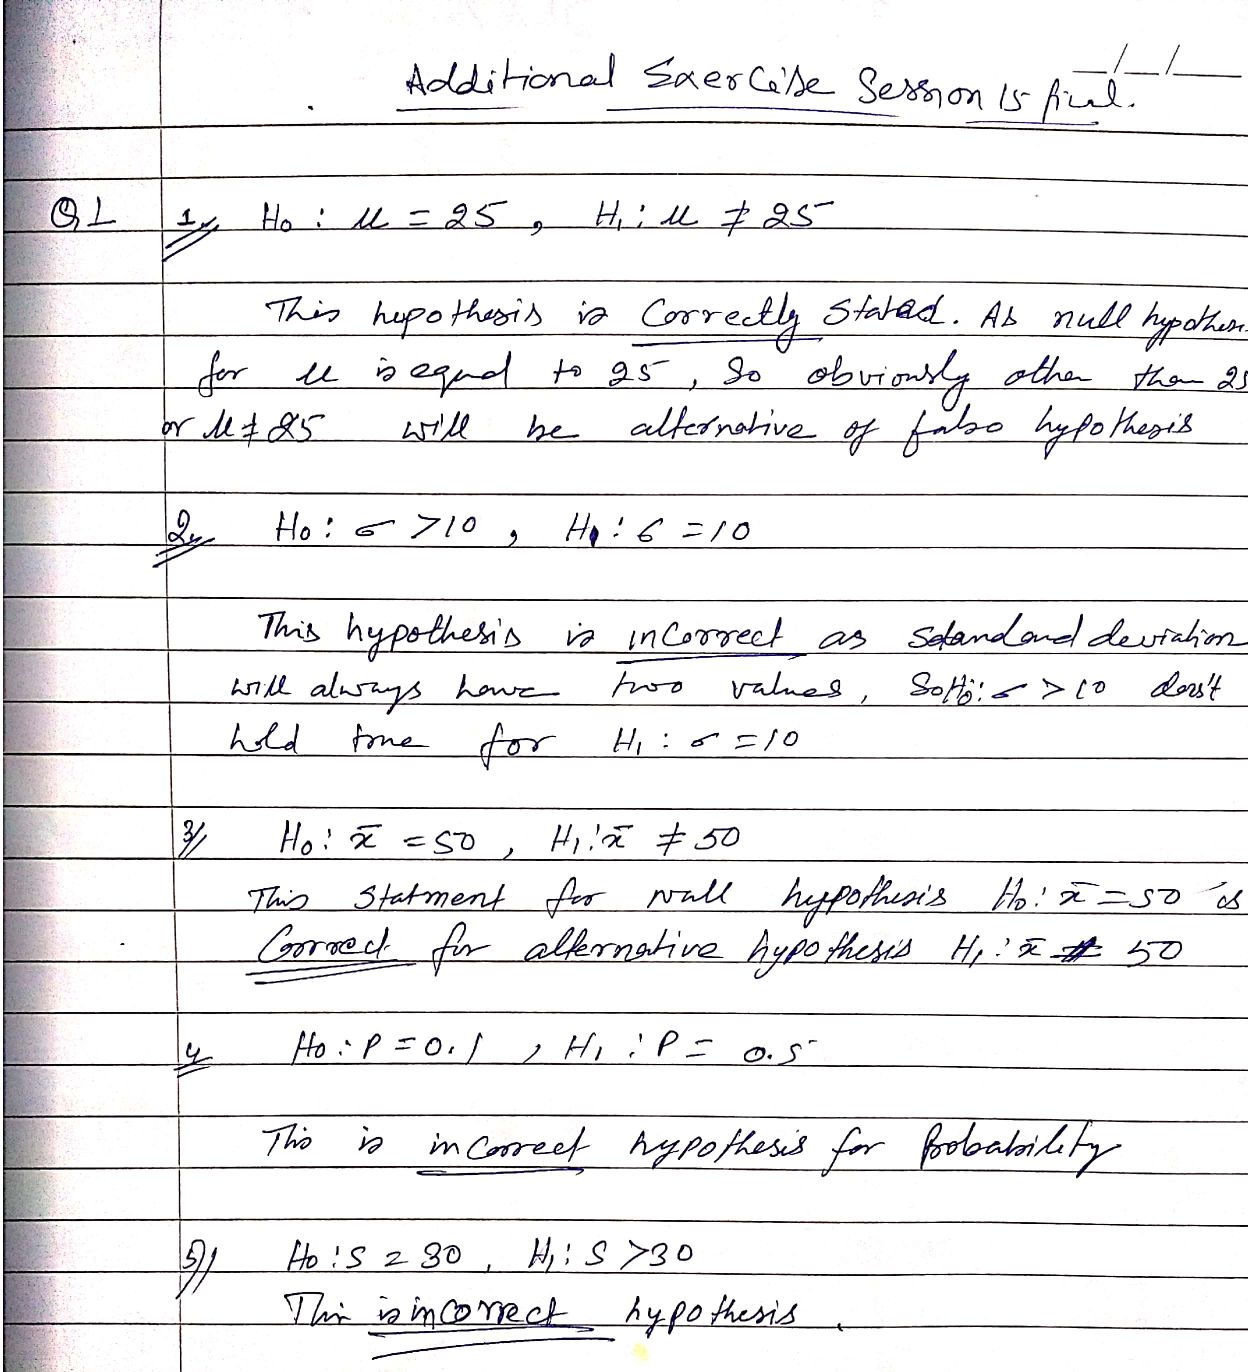 __/__/__
Additional Exercise Session 15 final.
Q1 1, H0 : μ = 25 , H1 : μ ≠ 25
This hypothesis is Correctly Stated. As null hypothesi
for μ is equal to 25 , So obviously other than 25
or μ ≠ 25 will be alternative of false hypothesis
2, H0 : σ >10 , H1 : σ =10
This hypothesis is incorrect as Standard deviation
will always have two values , So H0 : σ > 10 don't
hold true for H1 : σ =10
3, H0 : x̄ =50 , H1 : x̄ ≠ 50
This Statment for null hypothesis H0 : x̄ = 50 is
Correct for alternative hypothesis H1 : x̄ ≠ 50
4, H0 : P = 0.1 , H1 : P = 0.5
This is incorrect hypothesis for Probability
5) H0 : S = 30 , H1 : S >30
This is incorrect hypothesis .